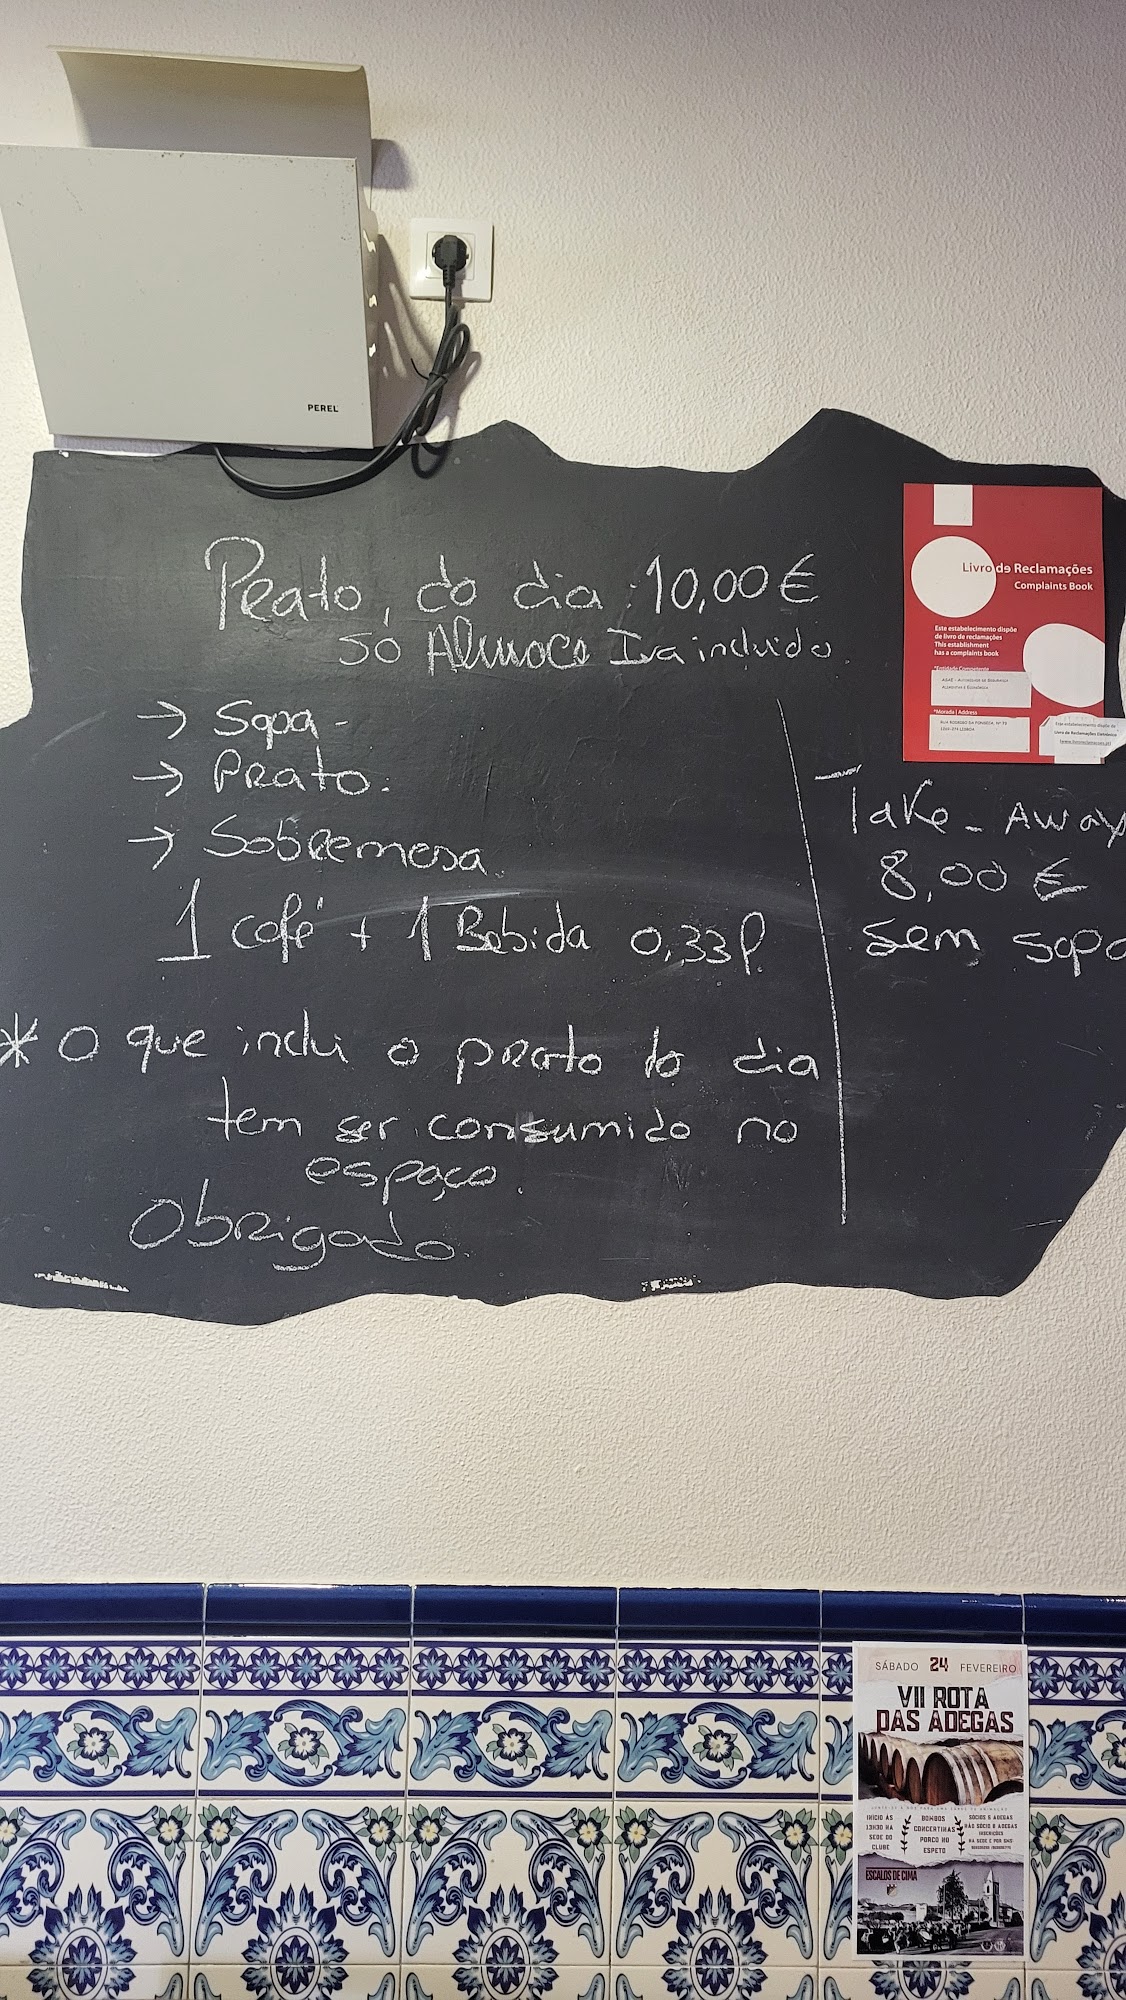 PEREL
Prato, do dia: 10,00 €
só Almoce Iva incluido.
→ Sopa -
→ Prato.
→ Sobremesa.
1 café + 1 Bebida 0,33l.
* O que inclui o prato do dia
tem ser consumido no
espaço.
Obrigado.
Take - Away
8,00 €
sem sopa
Livro de Reclamações
Complaints Book
Este estabelecimento dispõe
de livro de reclamações
This establishment
has a complaints book
*Entidade Competente
ASAE - Autoridade de Segurança
Alimentar e Económica
*Morada | Address
Rua Rodrigo da Fonseca, Nº 73
1269-274 Lisboa
Este estabelecimento dispõe de
Livro de Reclamações Eletrónico
SÁBADO 24 FEVEREIRO
VII ROTA
DAS ADEGAS
INICIO ÀS
13H30 NA
SEDE DO
CLUBE
BOMBOS
CONCERTINAS
PORCO NO
ESPETO
SÓCIOS 6 ADEGAS
NÃO SÓCIO 8 ADEGAS
INSCRIÇÕES
NA SEDE E POR SMS
ESCALOS DE CIMA